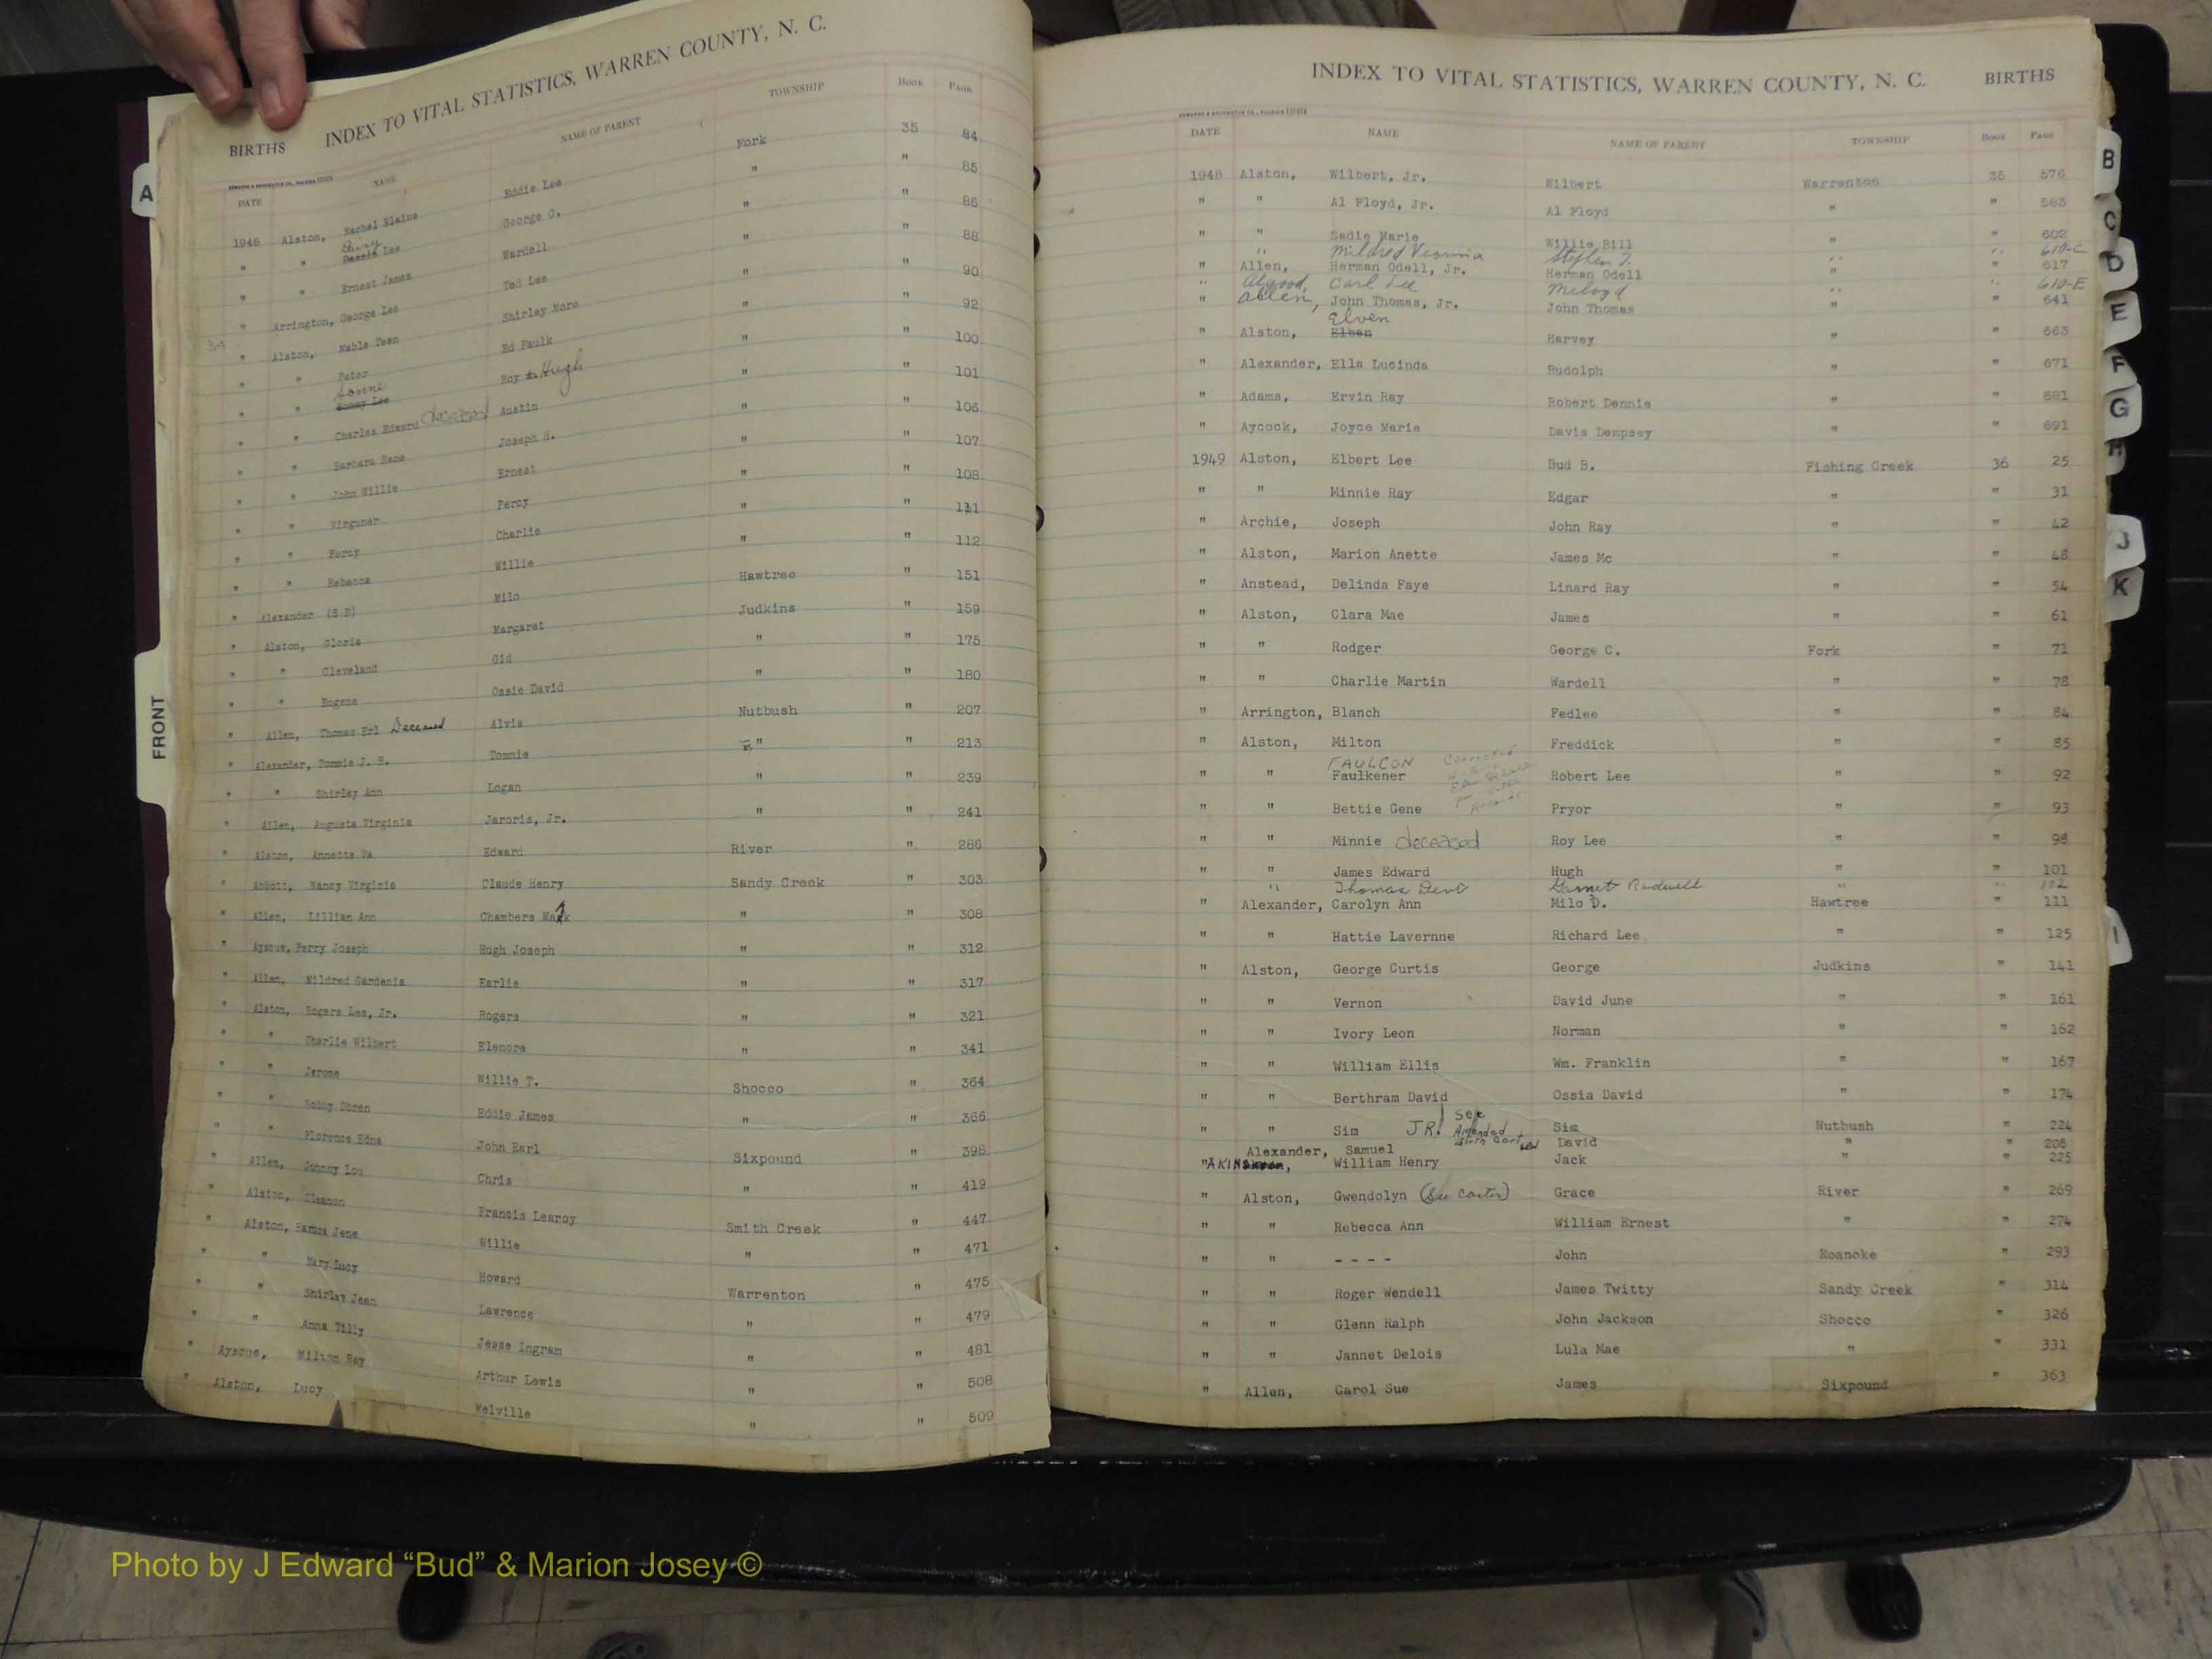 INDEX TO VITAL STATISTICS, WARREN COUNTY, N. C.
BIRTHS
DATE NAME NAME OF PARENT TOWNSHIP BOOK PAGE
1948 Alston, Rachel Elaine Eddie Lee Fork 35 84
" " Lee George C. " " 85
" " Ernest James Wardell " " 86
" Arrington, George Lee Ted Lee " " 88
" Alston, Mable Teen Shirley More " " 90
" " Peter Ed Faulk " " 92
" " Roy Hugh " " 100
" " Charles Edward deceased Austin " " 101
" " Barbara Rene Joseph H. " " 106
" " John Willie Ernest " " 107
" " Virguner Percy " " 108
" " Percy Charlie " " 111
" " Rebecca Willie " " 112
" Alexander (S B) Milo Hawtree " 151
" Alston, Gloria Margaret Judkins " 159
" " Cleveland Gid " " 175
" " Eugene Ossie David " " 180
" Allen, Thomas Erl Deceased Alvis Nutbush " 207
" Alexander, Tommie J. R. Tommie " " 213
" " Shirley Ann Logan " " 239
" Allen, Augusta Virginia Jaroris, Jr. " " 241
" Alston, Annette Va Edward River " 286
" Abbott, Nancy Virginia Claude Henry Sandy Creek " 303
" Allen, Lillian Ann Chambers " " 308
" Ayscue, Perry Joseph Hugh Joseph " " 312
" Allen, Mildred Gardenia Earlie " " 317
" Alston, Rogers Lee, Jr. Rogers " " 321
" " Charlie Wilbert Elenore " " 341
" " Jerome Willie T. Shocco " 364
" " Bobby Obren Eddie James " " 366
" " Florence Edna John Earl Sixpound " 398
" Allen, Johnny Lou Chris " " 419
" Alston, Cleamon Francis Learoy Smith Creek " 447
" Alston, Barbra Jene Willie " " 471
" " Mary Lucy Howard Warrenton " 475
" " Shirley Jean Lawrence " " 479
" " Anna Tilly Jesse Ingram " " 481
" Ayscue, Milton Ray Arthur Lewis " " 508
" Alston, Lucy Melville " " 509
INDEX TO VITAL STATISTICS, WARREN COUNTY, N. C. BIRTHS
DATE NAME NAME OF PARENT TOWNSHIP BOOK PAGE
1948 Alston, Wilbert, Jr. Wilbert Warrenton 35 576
" " Al Floyd, Jr. Al Floyd " " 583
" " Sadie Marie Willie Bill " " 602
" Mildred Virginia Stephen T. " " 610-C
" Allen, Herman Odell, Jr. Herman Odell " " 617
" Algood, Carl Lee Meloyd " " 610-E
" Allen, John Thomas, Jr. John Thomas " " 641
Elven
" Alston, Elben Harvey " " 663
" Alexander, Ella Lucinda Rudolph " " 671
" Adams, Ervin Ray Robert Dennie " " 681
" Aycock, Joyce Marie Davis Dempsey " " 691
1949 Alston, Elbert Lee Bud B. Fishing Creek 36 25
" " Minnie Ray Edgar " " 31
" Archie, Joseph John Ray " " 42
" Alston, Marion Anette James Mc " " 48
" Anstead, Delinda Faye Linard Ray " " 54
" Alston, Clara Mae James " " 61
" " Rodger George C. Fork " 71
" " Charlie Martin Wardell " " 78
" Arrington, Blanch Fedlee " " 84
" Alston, Milton Freddick " " 85
FAULCON Corrected
" " Faulkener Robert Lee " " 92
" " Bettie Gene Pryor " " 93
" " Minnie deceased Roy Lee " " 98
" " James Edward Hugh " " 101
" Thomas Garnet Rodwell " " 102
" Alexander, Carolyn Ann Milo D. Hawtree " 111
" " Hattie Lavernne Richard Lee " " 125
" Alston, George Curtis George Judkins " 141
" " Vernon David June " " 161
" " Ivory Leon Norman " " 162
" " William Ellis Wm. Franklin " " 167
" " Berthram David Ossia David " " 174
" " Sim JR. See Amended Birth Cert Sim Nutbush " 224
Alexander, Samuel David " " 205
" AKINS, William Henry Jack " 225
" Alston, Gwendolyn (See Carter) Grace River " 269
" " Rebecca Ann William Ernest " " 274
" " - - - - John Roanoke " 293
" " Roger Wendell James Twitty Sandy Creek " 314
" " Glenn Ralph John Jackson Shocco " 326
" " Jannet Delois Lula Mae " " 331
" Allen, Carol Sue James Sixpound " 363
A
FRONT
B
C
D
E
F
G
H
J
K
I
Photo by J Edward “Bud” & Marion Josey ©